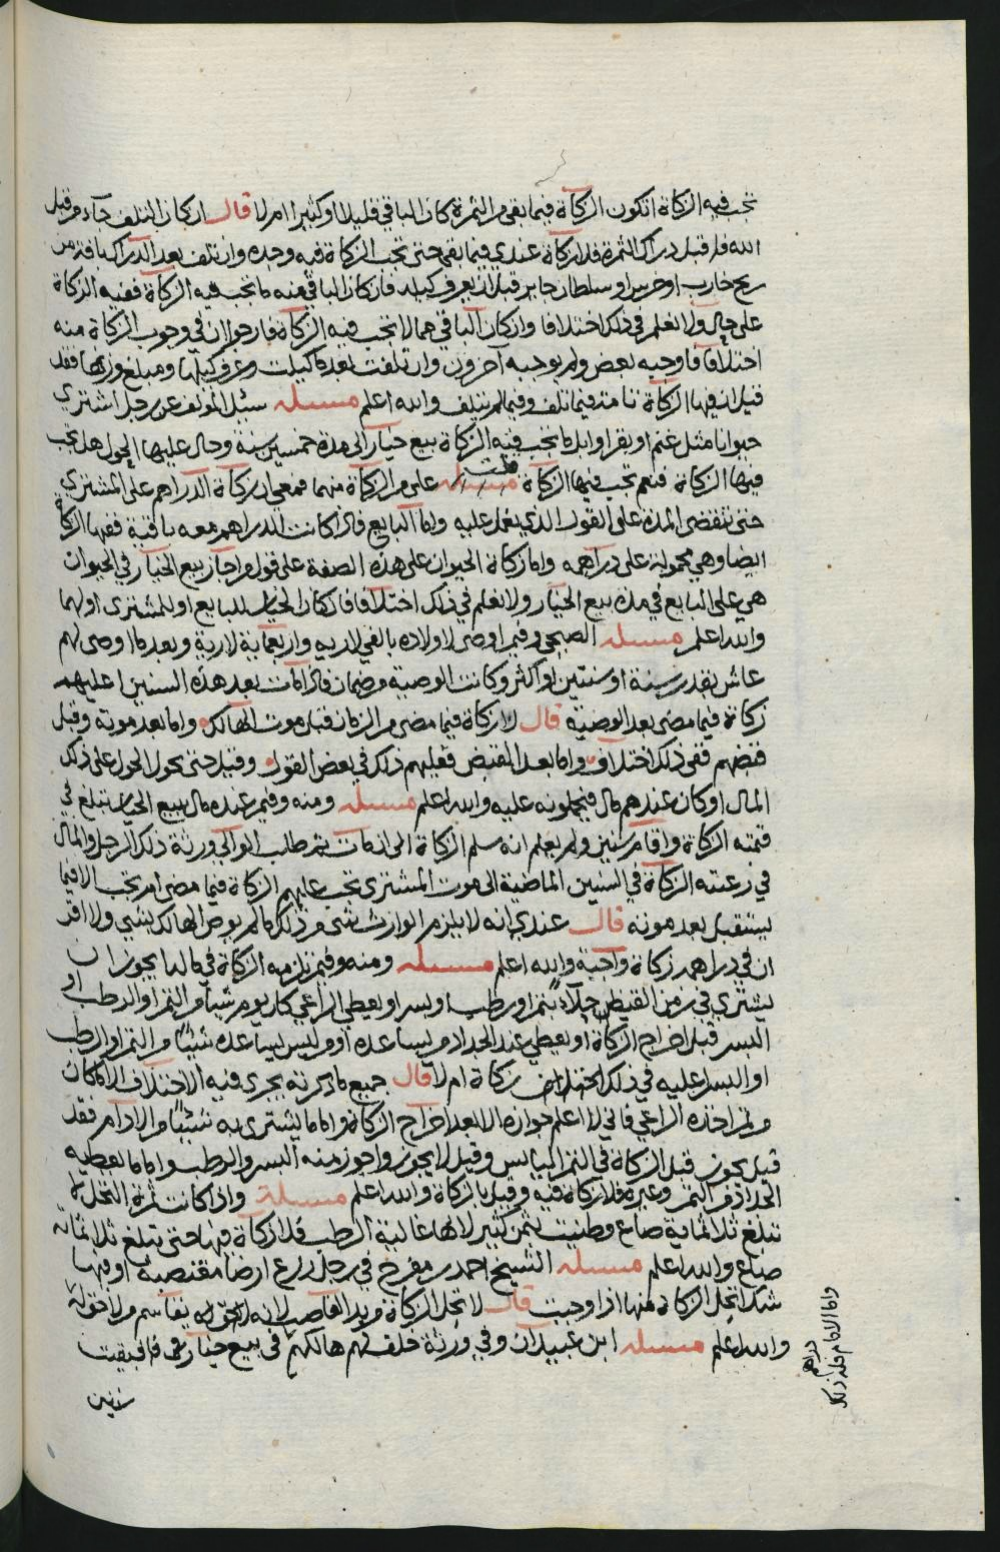 تجب فيه الزكاة اتكون الزكاة فيما بقي من الثمرة كان الباقي قليلا او كثيرا ام لا قال ان كان التلف جآء من قبل
الله من قبل دراك الثمرة فلا زكاة عندي فيما بقي حتى تجب الزكاة فيه وحده وان تلف بعد الدراك بافة من
ريح خارب او خرس او سلطان جاير قبل ان يعرف كيله فان كان الباقي منه ما تجب فيه الزكاة ففيه الزكاة
على حال ولا نعلم في ذلك اختلافا وان كان الباقي مما لا تجب فيه الزكاة فارجو ان في وجوب الزكاة منه
اختلافا فاوجبه بعض ولم يوجبه آخرون وان تلفت بعد ما كيلت وعرف كيلها ومبلغ وزنها فقد
قيل ان فيها الزكاة تامة فيما تلف وفيما لم يتلف والله اعلم مسئله سئل المؤلف عن رجل اشترى
حيوانا مثل غنم او بقر او ابل ما تجب فيه الزكاة بيع خيار الى مدة خمسين سنة وحال عليها الحول هل تجب
فيها الزكاة فنعم تجب فيها الزكاة قلت على من الزكاة منهما فمعي ان زكاة الدراهم على المشتري
حتى تنقضي المدة على القول الذي يعمل عليه واما البايع فان كانت الدراهم معه باقية ففيها الزكاة
ايضا وهي محمولة على دراهمه واما زكاة الحيوان على هذه الصفة على قول من اجاز بيع الخيار في الحيوان
هي على البايع في مدة بيع الخيار ولا نعلم في ذلك اختلافا كان الخيار للبايع او للمشتري او لهما
والله اعلم مسئله الصبحي وفيمن اوصى لاولاده بالفي لارية واربعماية لارية وبعد ما اوصى لهم
عاش بقدر سنة او سنتين او اكثر وكانت الوصية من ضمان فان مات بعد هذه السنين اعليهم
زكاة فيما مضى بعد الوصية قال لا زكاة فيما مضى من الزمان قبل موت الهالك واما بعد موته وقبل
قبضهم ففي ذلك اختلاف واما بعد القبض فعليهم ذلك في بعض القول وقيل حتى يحول الحول على ذلك
المال او كان عندهم مال فيحملونه عليه والله اعلم مسئله ومنه وفيمن عنده مال ببيع الخيار تبلغ في
قيمته الزكاة واقام سنين ولم يعلم انه سلم الزكاة الى ان مات ثم طالب الوالي ورثة ذلك الرجل والمال
في زعمته الزكاة في السنين الماضية الى موت المشتري تجب عليهم الزكاة فيما مضى ام تجب الا فيما
يستقبل بعد موته قال عندي انه لا يلزم الوارث شئ من ذلك ما لم يوص الهالك بشي ولا اقر
ان في دراهمه زكاة واجبة والله اعلم مسئله ومنه وفيمن تلزمه الزكاة في ماله ايجوز ان
يشتري في زمن القيظ جلآء بتمر او رطب او بسر او يعطي الراعي كل يوم شيا من التمر او الرطب او
البسر قبل اخراج الزكاة او يعطي عند الجداد من يساعده او من ليس يساعده شيئا من التمر او الرطب
او البسر اعليه في ذلك زكاة ام لا قال جميع ما ذكرته يجري فيه الاختلاف الا ما كان
من اخذه الراعي فاني لا اعلم جوازه الا بعد اخراج الزكاة واما ما يشتري به شيئا من الادام فقد
قيل يجوز قبل الزكاة في التمر اليابس وقيل لا يجوز واجوز منه البسر والرطب واما ما يعطيه
الجداد من التمر وغيره فلا زكاة فيه وقيل بالزكاة والله اعلم مسئلة واذا كانت ثمرة النخل لم
تبلغ ثلاثماية صاع وطنيت بثمن كثير لانها غالية الرطب فلا زكاة فيها حتى تبلغ ثلاثماية
صاع والله اعلم مسئله الشيخ احمد بن مفرج في رجل زرع ارضا مغتصبة او فيها
شك اتحل الزكاة منها اذا وجبت قال لا تحل الزكاة من يد الغاصب لانه لا حق له يقاسم من لا حق له
والله اعلم مسئله ابن عبيدان وفي ورثة خلف لهم هالكهم في بيع خيار فما بقيت
سنين
واما الامام فله ذلك
دراهم